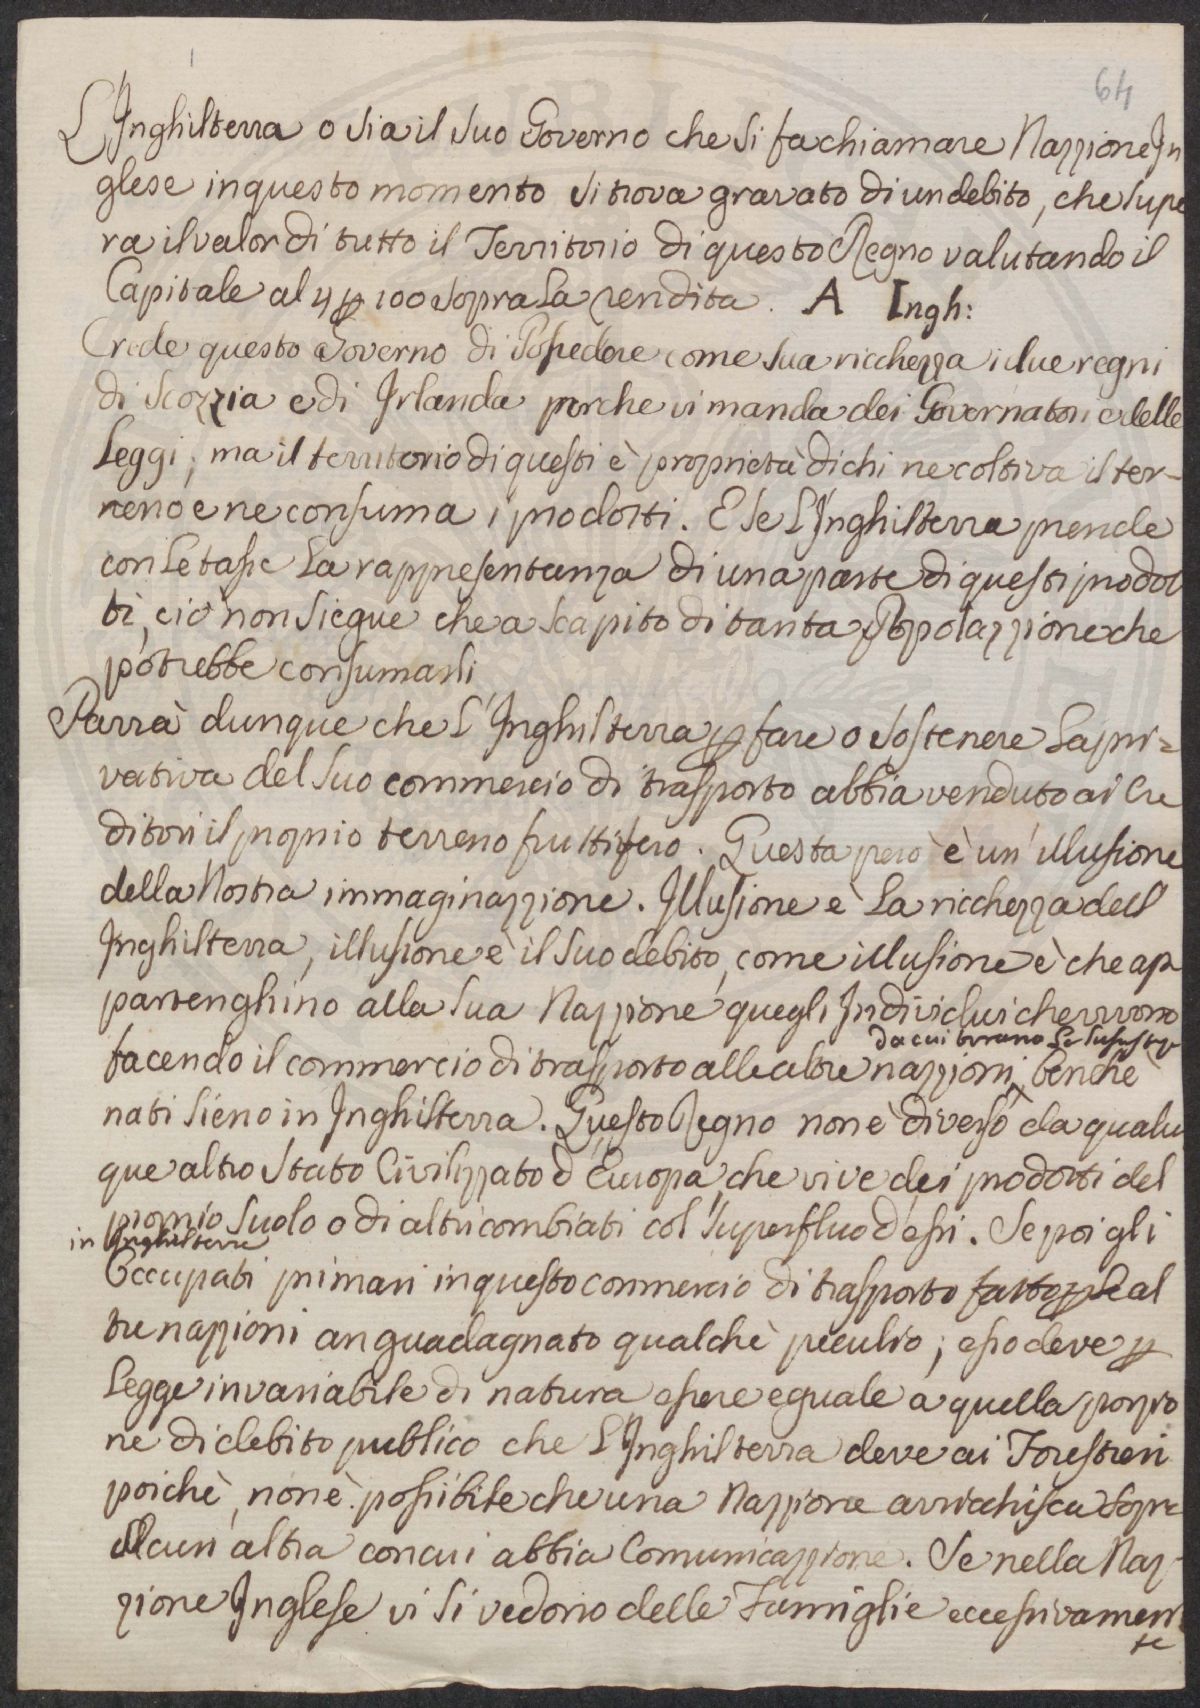 64
L'Inghilterra o sia il suo Governo che si fa chiamare Nazzione In
glese in questo momento si trova gravato di un debito, che supe
ra il valor di tutto il Territorio di questo Regno valutando il
Capitale al 4 p 100 sopra la rendita. A Ingh:
Crede questo Governo di Possedere come sua ricchezza i due regni
di Scozzia e di Irlanda perche vi manda dei Governatori e delle
Leggi; ma il territorio di questi è proprietà di chi ne coltiva il ter-
reno e ne consuma i prodotti. E se l'Inghilterra prende
con le tasse la rappresentanza di una parte di questi prodot
ti, ciò non siegue che a scapito di tanta Popolazzione che
potrebbe consumarli
Parrà dunque che l'Inghilterra p fare o sostenere la pri=
vativa del suo commercio di trasporto abbia venduto ai Cre
ditori il proprio terreno fruttifero. Questa però è un'illusione
della Nostra immaginazzione. Illusione è la ricchezza dell
Inghilterra, illusione è il suo debito, come illusione è che ap
partenghino alla sua Nazzione quegli Individui che vivono
da cui tirano le
facendo il commercio di trasporto alle altre nazzioni, benche
nati sieno in Inghilterra. Questo Regno non è diverso da qualu
que altro Stato Civilizzato d'Europa, che vive dei prodotti del
proprio suolo o di altri combiati col superfluo d'essi. Se poi gli
in Inghilterra
Occupati primari in questo commercio di trasporto fatto p le al
tre nazzioni an guadagnato qualche peculio; esso deve p
Legge invariabile di natura essere eguale a quella porzio
ne di debito publico che l'Inghilterra deve ai Forestieri
poichè non è possibile che una Nazzione arricchisca sopra
alcun'altra con cui abbia Comunicazzione. Se nella Naz-
zione Inglese vi si vedono delle Famiglie eccessivamen
te